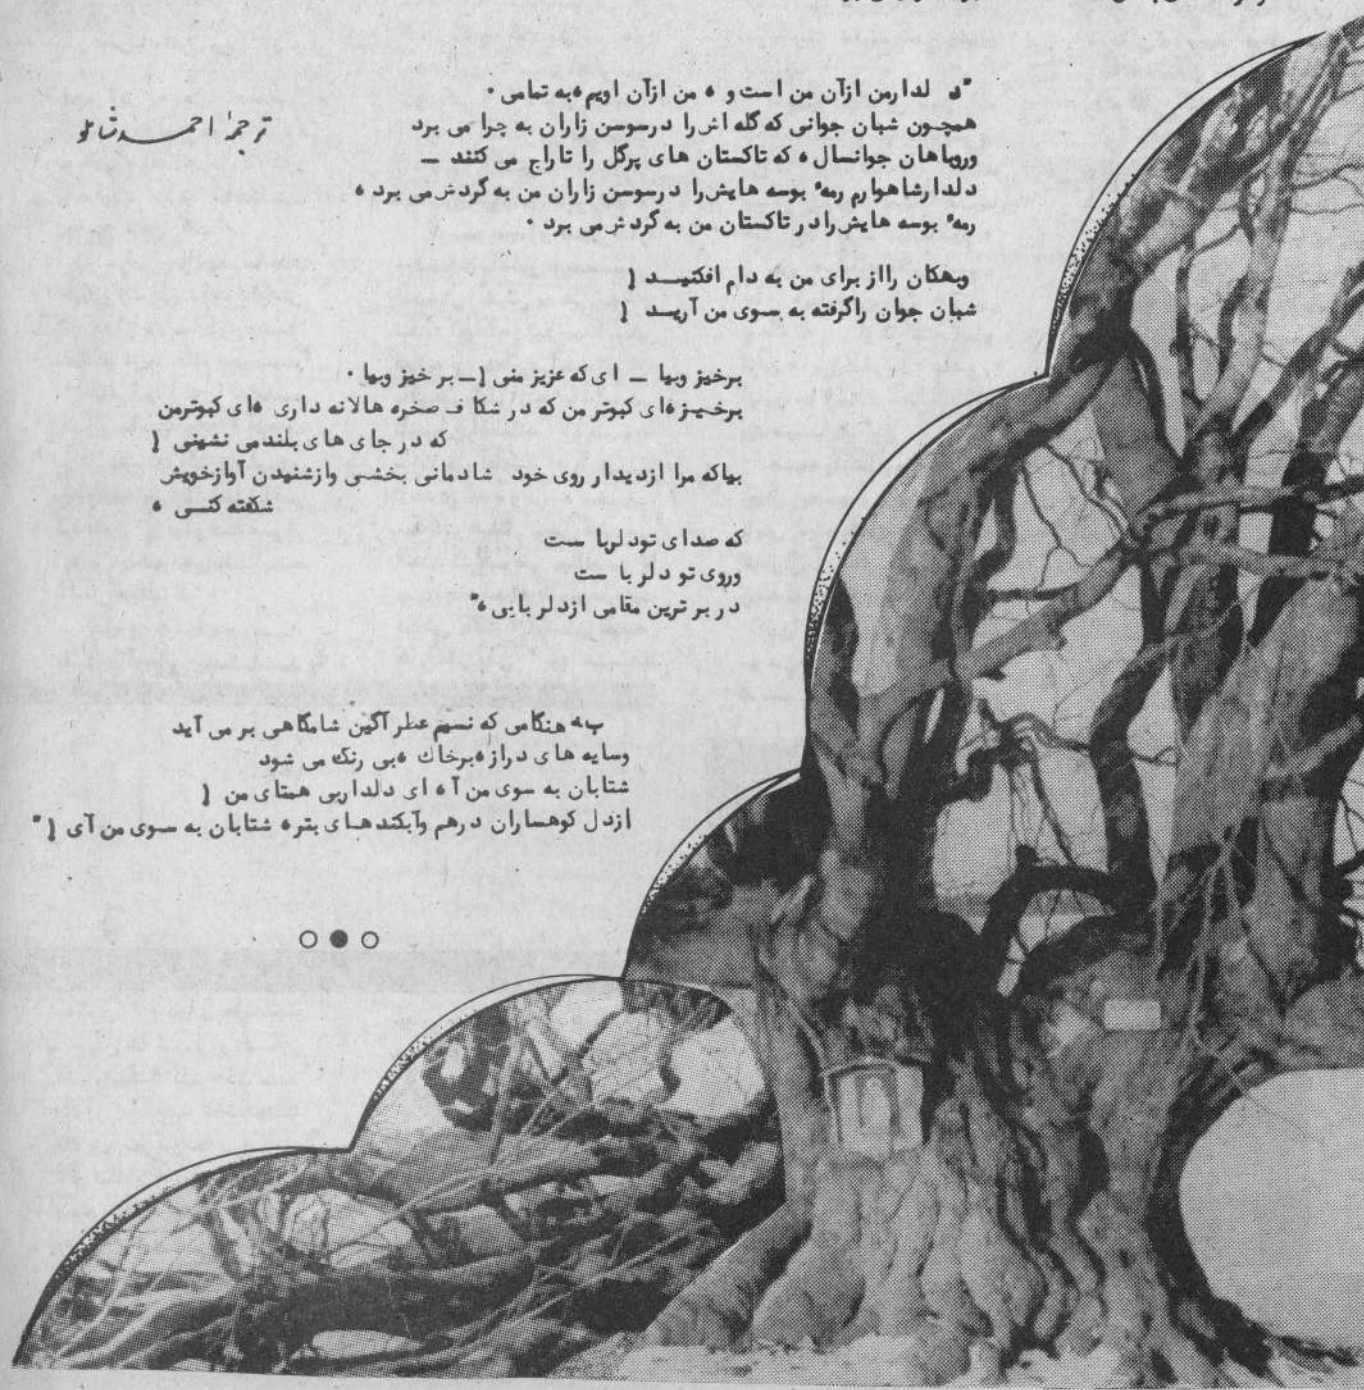 "د لدارمن ازآن من است و ، من ازآن اویم ،به تمامی .
همچون شبان جوانی که گله اش را درسوسن زاران به چرا می برد
وروباهان جوانسال ، که تاکستان های پرگل را تاراج می کنند —
دلدارشاهوارم رمهٔ بوسه هایش را درسوسن زاران من به گردش می برد ،
رمهٔ بوسه هایش رادر تاکستان من به گردش می برد .
ترجمهٔ احمد شاملو
وبهکان رااز برای من به دام افکنید !
شبان جوان راگرفته به سوی من آرید !
برخیز وبیا — ای که عزیز منی ! — بر خیز وبیا .
برخیز ،ای کبوتر من که در شکاف صخره هالانه داری ،ای کبوترمن
که در جای های بلندمی نشینی !
بیاکه مرا ازدیدار روی خود شادمانی بخشی وازشنیدن آوازخویش
شکفته کنی ،
که صدای تودلربا ست
وروی تو دلر با ست
در بر ترین مقامی ازدلر بایی ،"
به هنگامی که نسیم عطر آگین شامگاهی بر می آید
وسایه های دراز ،برخاك ،بی رنگ می شود
شتابان به سوی من آ ، ای دلداربی همتای من !
ازدل کوهساران درهم وآبکندهای بتر، شتابان به سوی من آی ! "